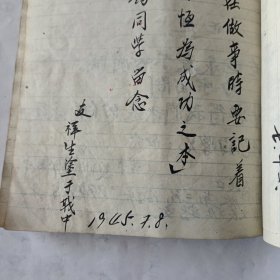 在做事時要記着
恒為成功之本」
同学留念
友祥生塗于戰中
1945.7.8.